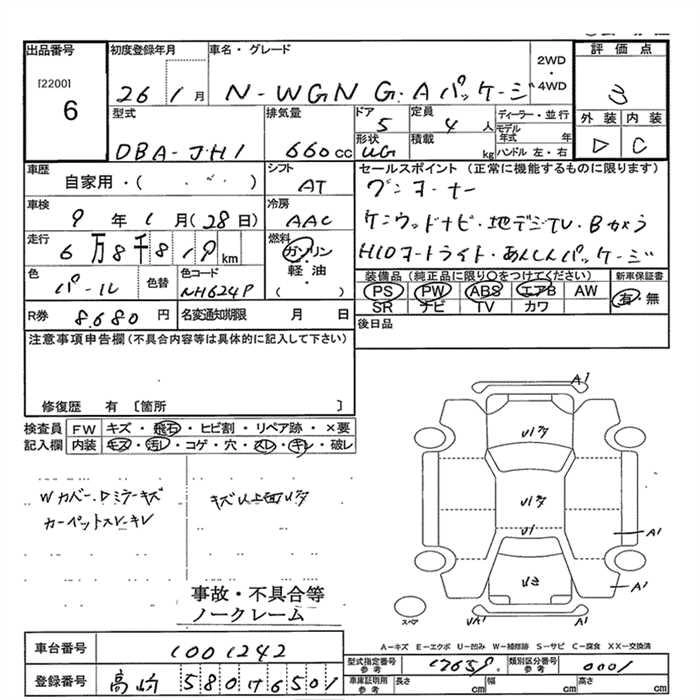 出品番号
[2200]
6
初度登録年月
26年1月
車名・グレード
N-WGN G・Aパッケージ
2WD・4WD
評価点
3
外装 内装
D C
型式
DBA-JH1
排気量
660cc
ドア
5
定員
4人
ディーラー・並行
モデル年式 年
形状
UG
積載
kg
ハンドル 左・右
車歴
自家用・( )
シフト
AT
セールスポイント (正常に機能するものに限ります)
ワンオーナー
ケンウッドナビ・地デジTV・Bカメラ
HIDオートライト・あんしんパッケージ
車検
9年1月(28日)
冷房
AAC
走行
6万8千819km
燃料
ガソリン・軽油・( )
色
パール
色替
色コード
NH624P
装備品(純正品に限り○をつけてください)
PS PW ABS エアB AW
SR ナビ TV カワ
新車保証書
有・無
R券
8.680円
名変通知期限 月 日
後日品
注意事項申告欄(不具合内容等は具体的に記入して下さい)
修復歴 有 〔箇所 〕
検査員 FW キズ・飛石・ヒビ割・リペア跡・×要
記入欄 内装 キズ・汚レ・コゲ・穴・スレ・キレ・破レ
Wカバー・Dミラーキズ
カーペットスレ・キレ
事故・不具合等
ノークレーム
A1
U1
A1
A1
A1
スペア
A-キズ E-エクボ U-凹み W-補修跡 S-サビ C-腐食 XX-交換済
車台番号
1001242
登録番号
高崎 580 6501
型式指定番号 参考
17658
類別区分番号 参考
0001
車庫証明用 参考
長さ cm 幅 cm 高さ cm